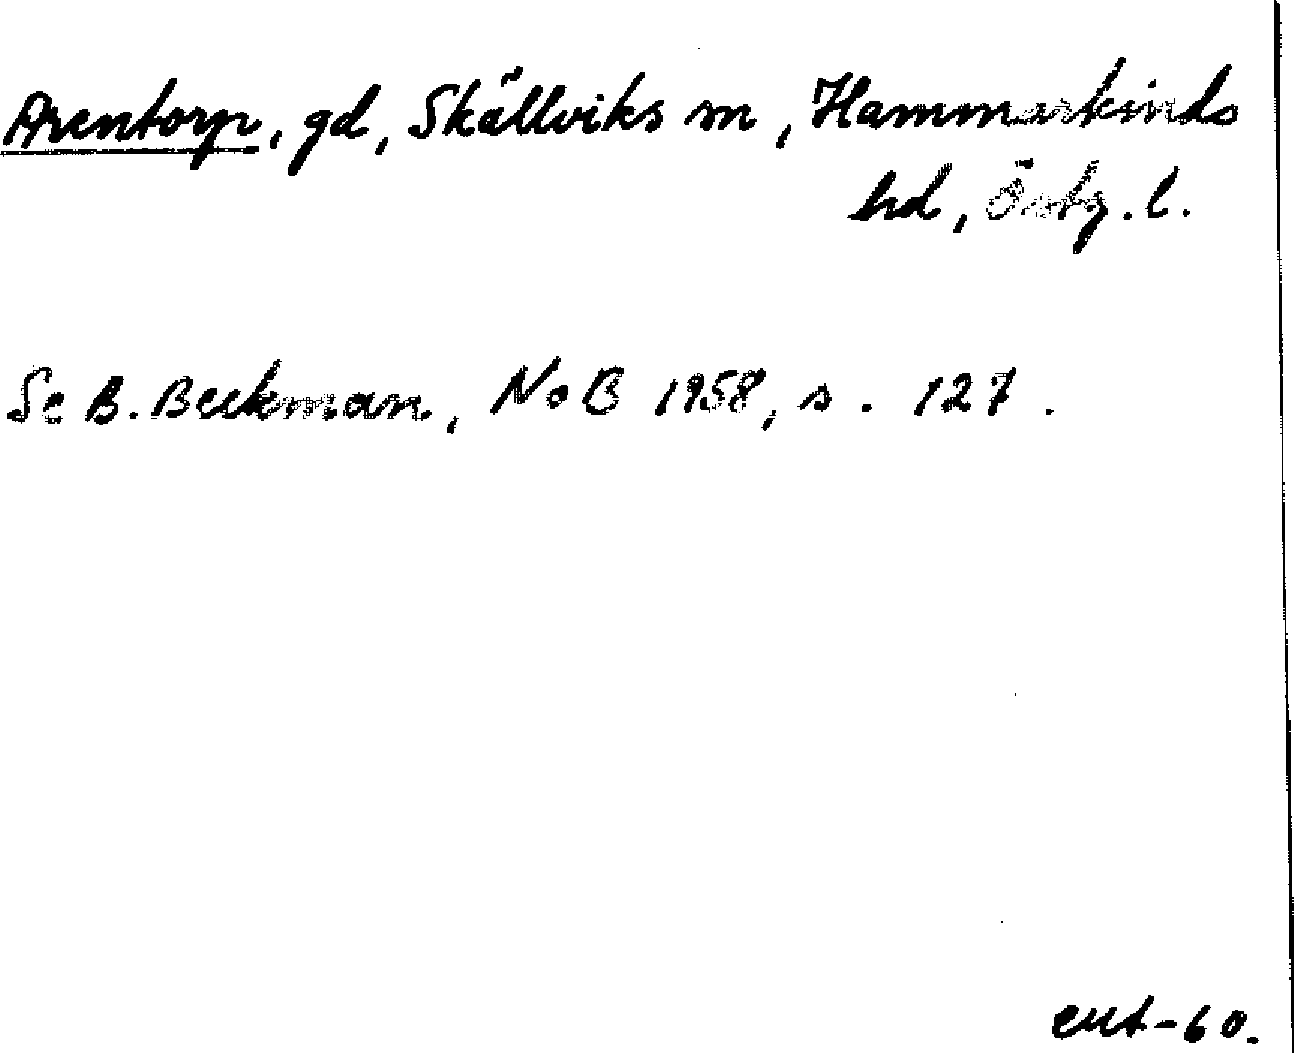 Arentorp, gd, Skällviks sn, Hammarkinds
hd, Östg. l.
Se B. Beckman, NoB 1958, s. 127.